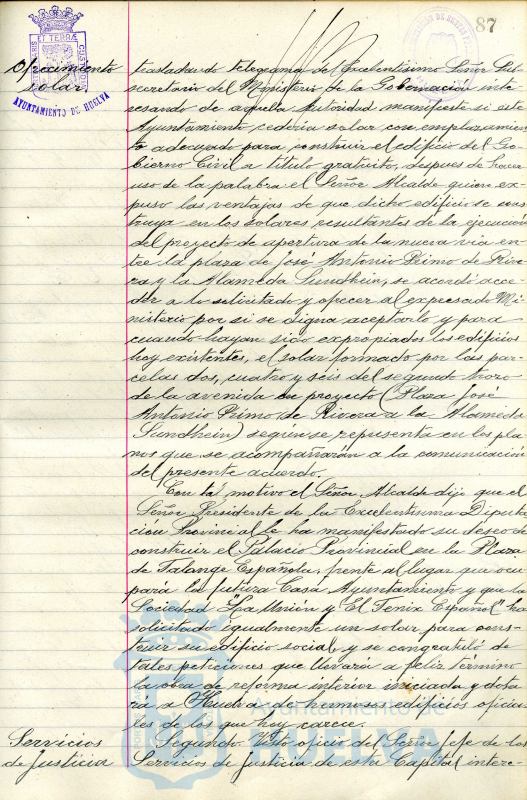 87
AYUNTAMIENTO DE HUELVA
Ofrecimiento
solar
trasladando telegrama del Excelentísimo Señor Sub-
secretario del Ministerio de la Gobernación inte-
resando de aquella Autoridad manifieste si este
Ayuntamiento cedería solar con emplazamien-
to adecuado para construir el edificio del Go-
bierno Civil a título gratuito, despues de hacer
uso de la palabra el Señor Alcalde quien ex-
puso las ventajas de que dicho edificio se cons-
truya en los solares resultantes de la ejecución
del proyecto de apertura de la nueva vía en-
tre la plaza de José Antonio Primo de Rive-
ra y la Alameda Sundhein, se acordó acce-
der a lo solicitado y ofrecer al expresado Mi-
nisterio por si se digna aceptarlo y para
cuando hayan sido expropiados los edificios
hoy existentes, el solar formado por las par-
celas dos, cuatro y seis del segundo trozo
de la avenida en proyecto (Plaza José
Antonio Primo de Rivera a la Alameda
Sundhein) según se representa en los pla-
nos que se acompañarán a la comunicación
del presente acuerdo.
Con tal motivo el Señor Alcalde dijo que el
Señor Presidente de la Excelentísima Diputa-
ción Provincial le ha manifestado su deseo de
construir el Palacio Provincial en la Plaza
de Falange Española, frente al lugar que ocu-
pará la futura Casa Ayuntamiento y que la
Sociedad "La Unión y El Fenix Español" ha
solicitado igualmente un solar para cons-
truir su edificio social y se congratuló de
tales peticiones que llevará a feliz término
la obra de reforma interior iniciada y dota-
rá a Huelva de hermosos edificios oficia-
les de los que hoy carece.
Servicios
de Justicia
Segundo. Visto oficio del Señor Jefe de los
Servicios de Justicia de esta Capital intere-
Ayuntamiento de
HUELVA